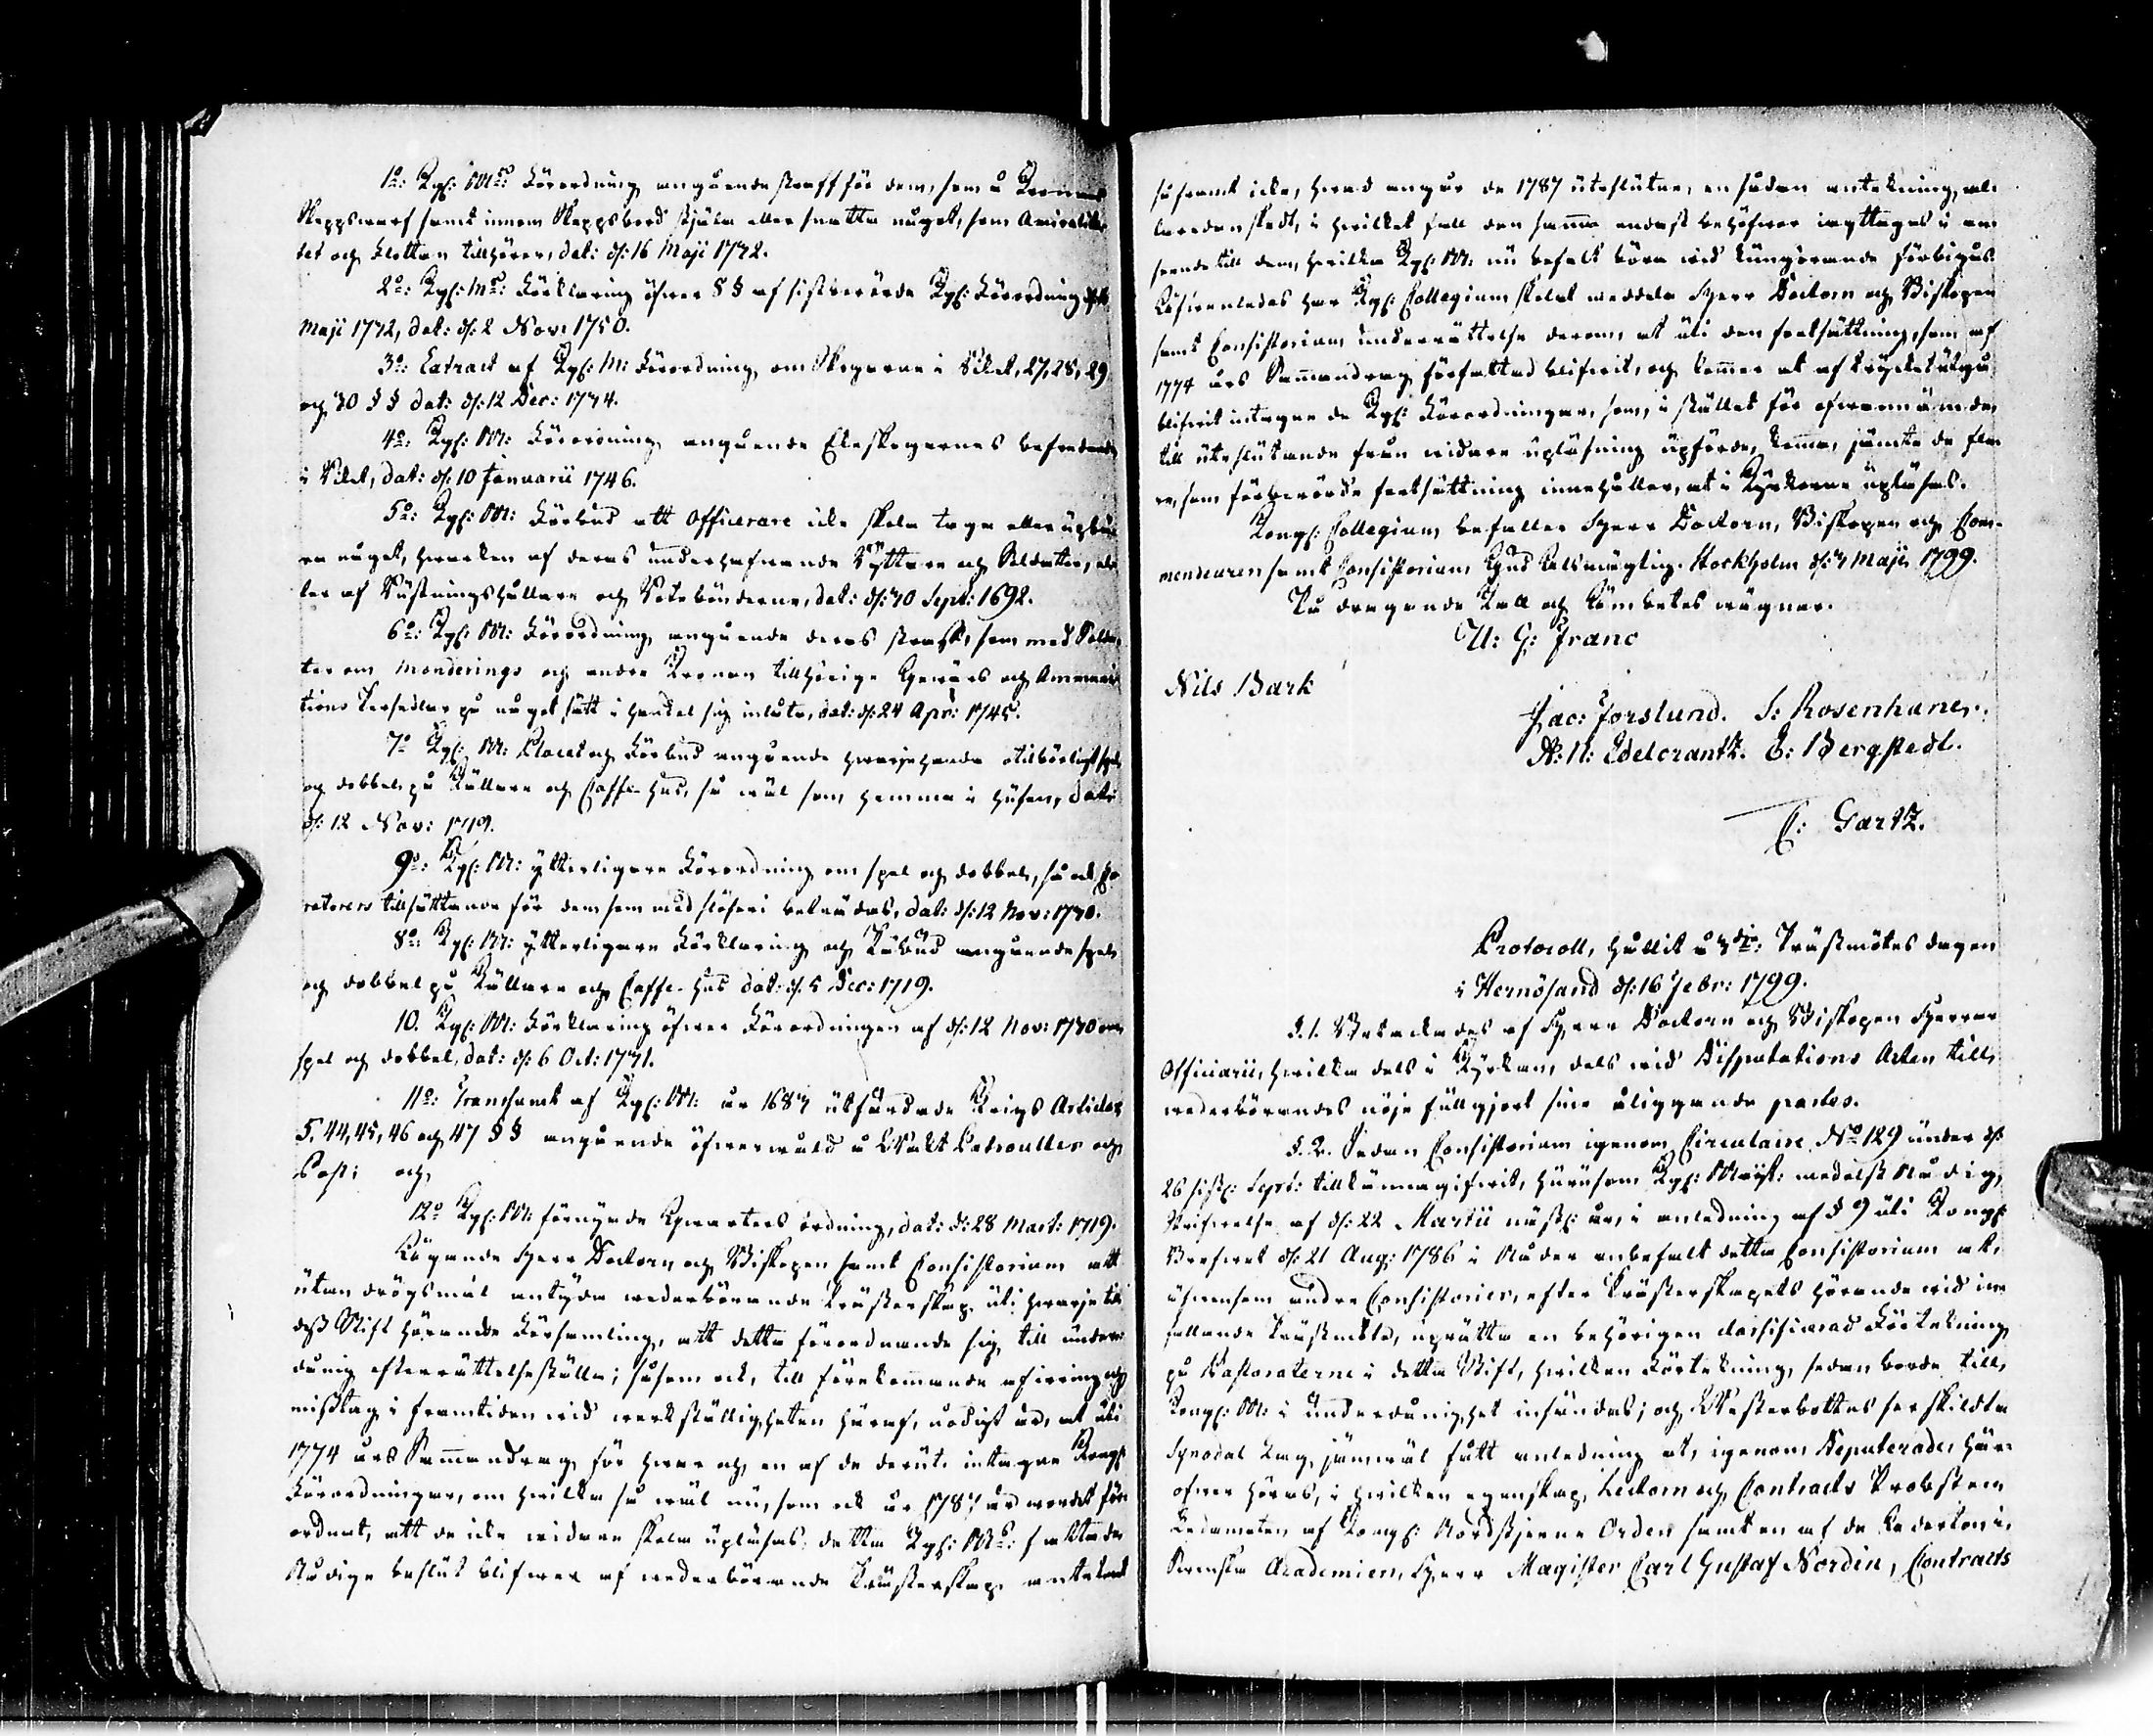 1o: Kgl: Mts: Förordning angående straff för dem, som å Kronans
Skeppswarf samt innom Skeppsbord stjäla eller snatta något, som Amiralite-
tet och Flottan tillhörer, dat: d: 16 Maji 1742.
2o: Kgl: Mts: Förklaring öfwer 8 § af sistberörde Kgl: Förordning
Maji 1742, dat: d: 2 Nov: 1750.
3o: Extract af Kgl: M: Förordning om Skogarne i Riket, 27, 28, 29
och 30 § § dat: d: 12 Dec: 1734.
4o: Kgl: M: Förordning angående Ekeskogarnes befredande
i Riket, dat: d: 10 Januarii 1746.
5o: Kgl: M: Förbud att Officerare icke skola taga eller upbä-
ra något, hwarken af deras underhafwande Ryttare och Soldater, el-
ler af Rustningshållare och Rotebönderne, dat: d: 30 Sept: 1692.
6o: Kgl: M: Förordning angående deras straff, som med Solda-
ter om Monderings och andra Kronan tillhörige Gewärs och Ammuni-
tions Persedlar på något sätt i handel sig inlåta, dat: d: 24 Apr: 1745.
7o Kgl: M: Placat och Förbud angående hwarjehanda otilbörligt spel
och dobbel på Källare och Caffe-hus, så wäl som hemma i husen, dat:
d: 12 Nov: 1719.
9o: Kgl: M: ytterligare Förordning om spel och dobbel, så ock Cu-
ratorers tillsättande för dem som med slöseri beträdas, dat: d: 12 Nov: 1730.
8o: Kgl: M: ytterligare Förklaring och Påbud angående spel
och dobbel på Källare och Caffe-hus dat: d: 5 Dec: 1719.
10. Kgl: M: Förklaring öfwer Förordningen af d: 12 Nov: 1730 om
spel och dobbel, dat: d: 6 Oct: 1731.
11o: Transsumt af Kgl: M: år 1683 utfärdade Krigs Articlar
5, 44, 45, 46 och 47 § § angående öfwerwåld å Wakt Patroulles och
Post; och
12o Kgl: M: förnyade Qwarters ordning, dat: d: 28 Mart: 1719.
Lägande Herr Doctorn och Biskopen samt Consistorium att
utan drögsmål antyda wederbörande Prästerskap uti hwarje till
dess Stift hörande Församling, att detta förordnande sig till under-
dånig efterrättelse ställa; såsom ock, till förekommande af irring och
misstag i framtiden wid werkställigheten häraf, nödigt är, at uti
1774 års Sammandrag för hwar och en af de deruti intagne Kongl
Förordningar, om hwilka så wäl nu, som ock år 1787 är wordet för-
ordnat, att de icke widare skola upläsas, detta Kgl: Mts: fattade
Nådige beslut blifwer af wederbörande Prästerskap antecknat
såframt icke, hwad angår de 1787 uteslutne, en sådan antekning, al-
laredan skedt, i hwilket fall den samma endast behöfwer iagttagas i an-
seende till dem, hwilka Kgl: M: nu befalt böra wid kungörande förbigås.
Likwenledes har Kgl: Collegium skolat meddela Herr Doctorn och Biskopen
samt Consistorium underrättelse derom, at uti den fortsättning, som af
1774 års Sammandrag författad blifwit, och kommer at af trycket utgå
blifwit intagne de Kgl: Förordningar, som, i stället för ofwannämnde,
till uteslutande från widare upläsning upförde, komma, jämte de fle-
re, som förberörde fortsättning innehåller, at i Kyrkorne upläsas.
Kongl: Collegium befaller Herr Doctorn, Biskopen och Com-
mendeuren samt Consistorium Gud Alsmägtig. Stockholm d: 7 Maji 1799.
På dragande Kall och Embetes wägnar.
U: G: Franc
Nils Bark
Jac: Forslund. S: Rosenhane.
A: N: Edelcrantz. E: Bergstedt.
C: Gartz.
Protocoll, hållit å 3die: Prästmötes dagen
i Hernösand d: 16 Febr: 1799.
§. 1. Betackades af Herr Doctorn och Biskopen Herrar
Officiarii, hwilka dels i Kyrkan, dels wid Disputations Acten till
wederbörandes nöje fullgjort sine åliggande partes.
§. 2. Sedan Consistorium igenom Circulaire No 129 under d:
26 sistl: Sept: tillkännagifwit, huru som Kgl: Majst: medelst Nådig
Skrifwelse af d: 22 Martii nästl: år, i anledning af § 9 uti Kongl
Brefwet d: 21 Aug: 1786 i Nåder anbefalt detta Consistorium at,
äfwensom andra Consistorier, efter Prästerskapets hörande wid in-
fallande Prästmöte, uprätta en behörigen classificerad Förtekning
på Pastoraterne i detta Stift, hwilken Förtekning sedan borde till
Kongl: M: i Underdånighet insändas; och Westerbottns serskildta
Synodal Lag, jämwäl fått anledning at, igenom Deputerade, här-
öfwer höras, i hwilken egenskap, Lectorn och Contracts Probsten
Ledamoten af Kongl: Nordstjerne Orden samt en af de Aderton i
Swenska Academien, Herr Magister Carl Gustaf Nordin, Contracts